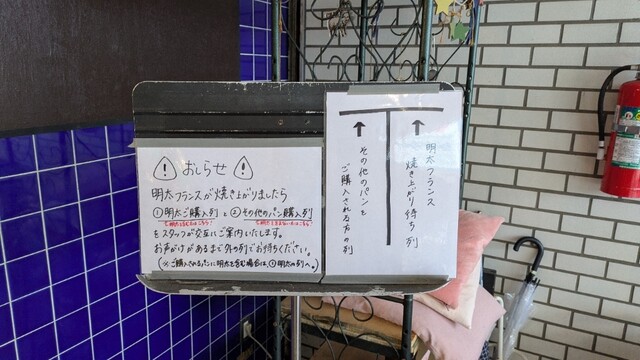 おしらせ
明太フランスが焼き上がりましたら
①明太ご購入列 と ②その他のパン購入列
をスタッフが交互にご案内いたします。
お声がけがあるまで外の列でお待ちください。
(※ご購入されるパンに明太を含む場合は、①明太の列へ。)
明太フランス
焼き上がり待ち列
その他のパンを
ご購入される方の列